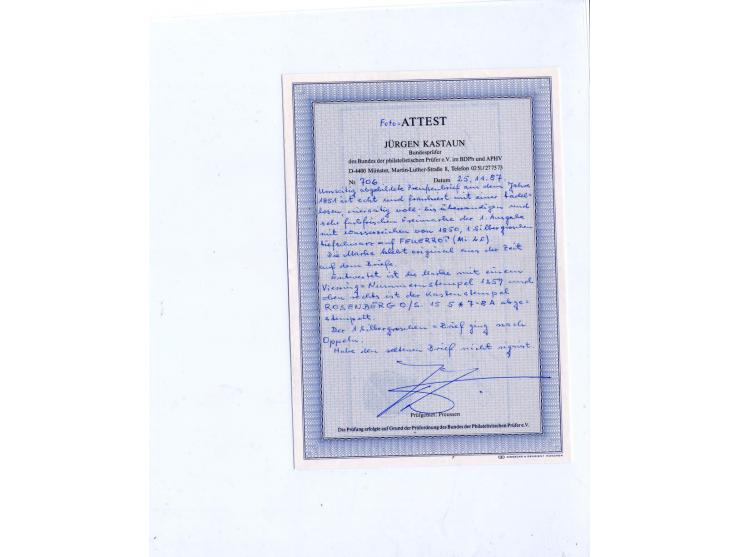 Foto-ATTEST
JÜRGEN KASTAUN
Bundesprüfer
des Bundes der philatelistischen Prüfer e.V. im BDPh und APHV
D-4400 Münster, Martin-Luther-Straße 8, Telefon 0251/277573
Nr. 706 Datum 25.11.87
Umseitig abgebildete Preußenbrief aus dem Jahre
1851 ist echt und frankiert mit einer tadel-
losen, vierseitig voll- bis überrandigen und
sehr farbfrischen Freimarke der 1. Ausgabe
mit Wasserzeichen von 1850, 1 Silbergroschen
tiefschwarz auf FEUERROT (Mi 2 )
Die Marke klebt original aus der Zeit
auf dem Briefe.
Entwertet ist die Marke mit einem
Vierring-Nummernstempel 1259 und
oben rechts ist der Kastenstempel
ROSENBERG O/S. 15 5 * 7-8 A abge-
stempelt.
Der 1 Silbergroschen-Brief ging nach
Oppeln.
Habe den seltenen Brief nicht signiert.
Prüfgebiet: Preussen
Die Prüfung erfolgte auf Grund der Prüfordnung des Bundes der Philatelistischen Prüfer e.V.